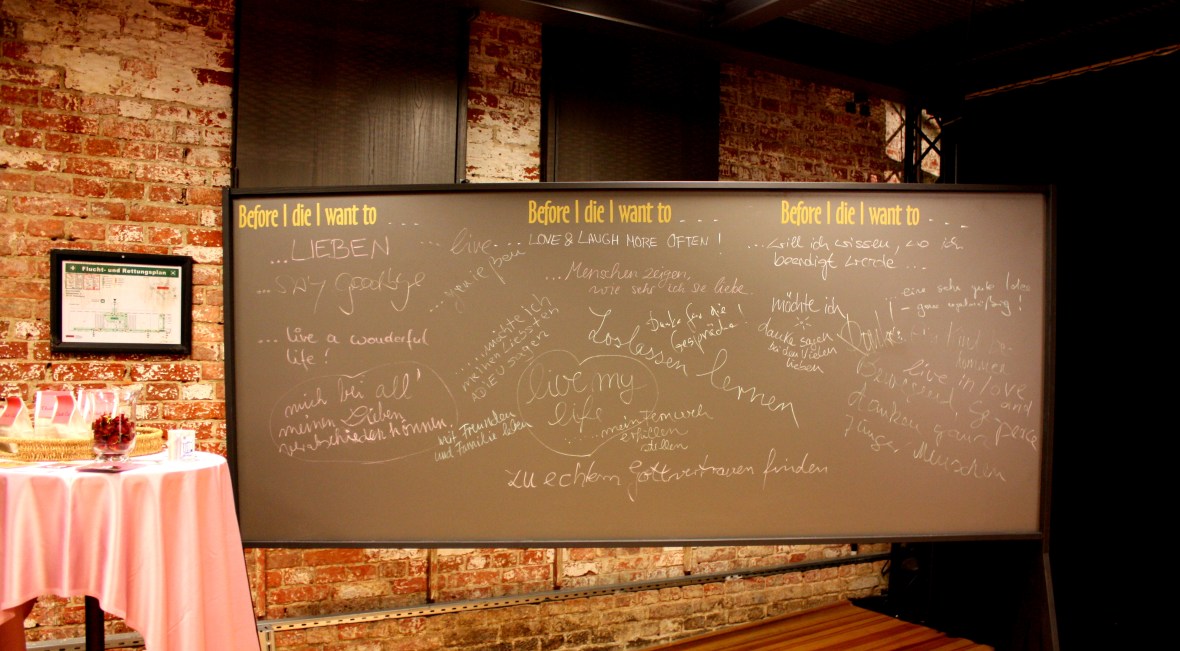 Flucht- und Rettungsplan
Before I die I want to ....
...LIEBEN
...say goodbye
... live a wonderful
life!
mich bei all'
meinen Lieben
verabschieden können.
... live....
... genießen
...möchte ich
meinen Liebsten
ADIEU sagen
mit Freunden
und Familie leben
Before I die I want to ....
LOVE & LAUGH MORE OFTEN!
...Menschen zeigen,
wie sehr ich sie liebe.
Danke für die
Gespräche!
Loslassen lernen
live my
life
...mein Fernweh
stillen
zu echtem Gottvertrauen finden
Before I die I want to ....
...will ich wissen, wo ich
beerdigt werde ...
möchte ich
danke sagen
bei den Vielen
lieben
... eine sehr gute
!
live in love
and peace
Menschen